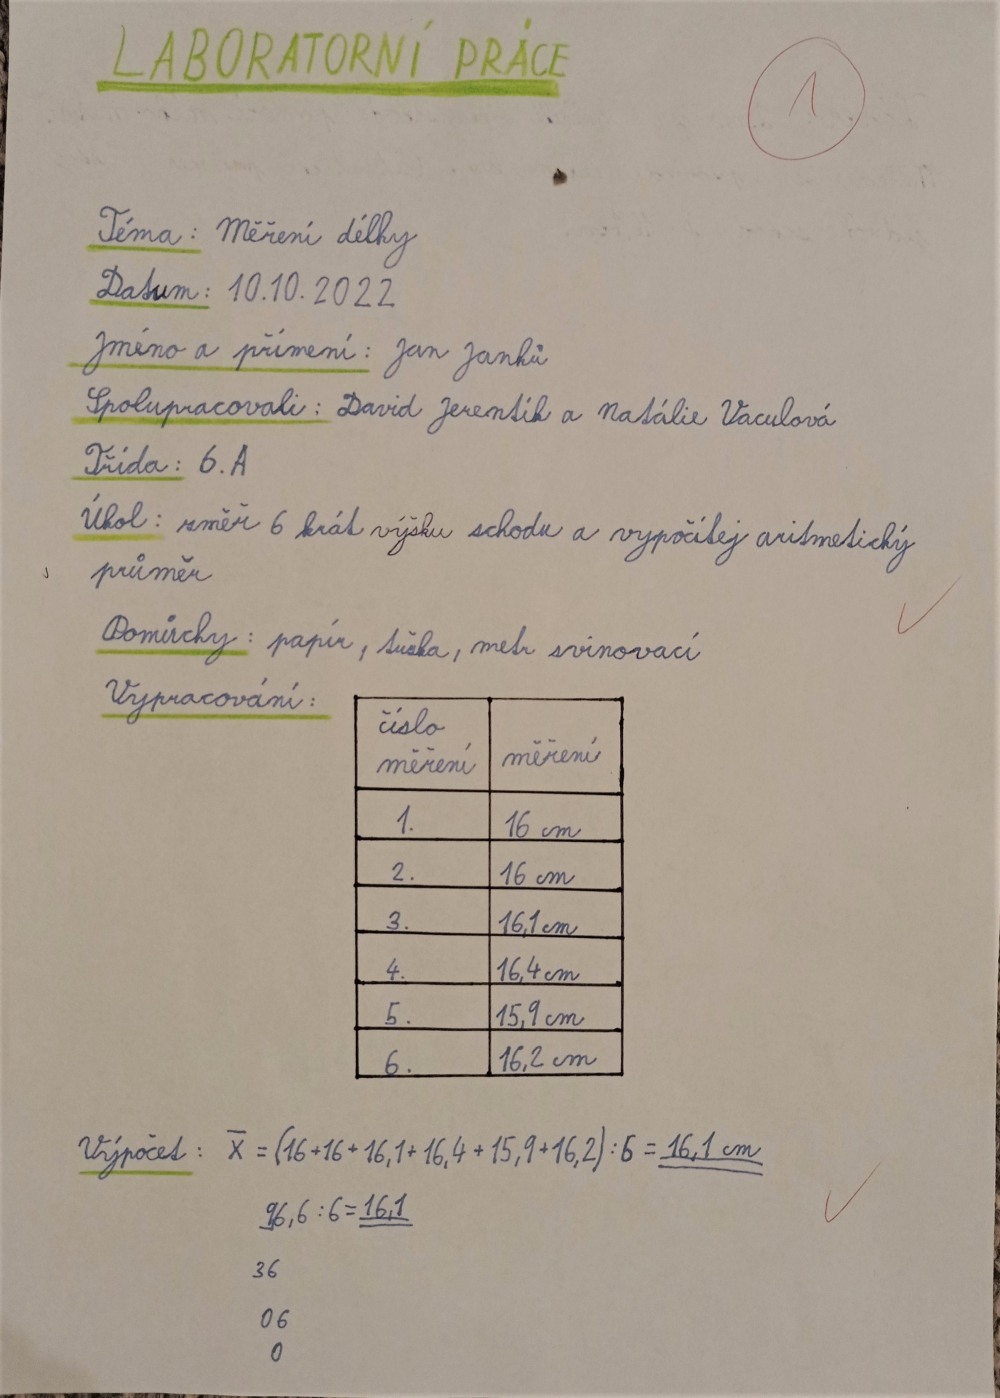 LABORATORNÍ PRÁCE
1
Téma: Měření délky
Datum: 10.10.2022
Jméno a přímení: Jan Janků
Spolupracovali: David Jerentík a Natálie Vaculová
Třída: 6.A
Úkol: změř 6 krát výšku schodu a vypočítej aritmetický
průměr
Pomůcky: papír, tužka, metr svinovací
Vypracování:
číslo měření
měření
1. 16 cm
2. 16 cm
3. 16,1 cm
4. 16,4 cm
5. 15,9 cm
6. 16,2 cm
Výpočet: x̄ = (16+16+16,1+16,4+15,9+16,2):6 = 16,1 cm
96,6:6=16,1
36
06
0